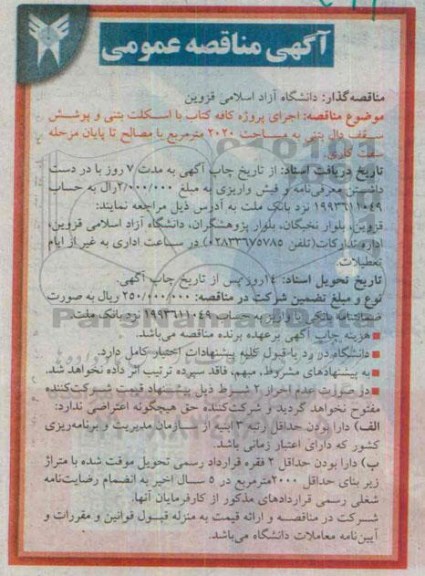 آگهی مناقصه عمومی
مناقصه‌گذار: دانشگاه آزاد اسلامی قزوین
موضوع مناقصه: اجرای پروژه کافه کتاب با اسکلت بتنی و پوشش
سقف دال بتنی به مساحت ۲۰۲۰ مترمربع با مصالح تا پایان مرحله
سفت کاری.
تاریخ دریافت اسناد: از تاریخ چاپ آگهی به مدت ۷ روز با در دست
داشتن معرفی‌نامه و فیش واریزی به مبلغ ۲/۰۰۰/۰۰۰ریال به حساب
۱۹۹۳۶۱۱۰۴۹ نزد بانک ملت به آدرس ذیل مراجعه نمایند:
قزوین، بلوار نخبگان، بلوار پژوهشگران، دانشگاه آزاد اسلامی قزوین،
اداره تدارکات(تلفن ۰۲۸۳۳۶۷۵۷۸۵) در ساعات اداری به غیر از ایام
تعطیلات.
تاریخ تحویل اسناد: ۱۴روز پس از تاریخ چاپ آگهی.
نوع و مبلغ تضمین شرکت در مناقصه: ۲۵۰/۰۰۰/۰۰۰ ریال به صورت
ضمانتنامه بانکی یا واریز به حساب ۱۹۹۳۶۱۱۰۴۹ نزد بانک ملت.
■ هزینه چاپ آگهی برعهده برنده مناقصه می‌باشد.
■ دانشگاه در رد یا قبول کلیه پیشنهادات اختیار کامل دارد.
■ به پیشنهادهای مشروط، مبهم، فاقد سپرده ترتیب اثر داده نخواهد شد.
■ در صورت عدم احراز ۲ شرط ذیل پیشنهاد قیمت شرکت‌کننده
مفتوح نخواهد گردید و شرکت‌کننده حق هیچگونه اعتراضی ندارد:
الف) دارا بودن حداقل رتبه ۳ ابنیه از سازمان مدیریت و برنامه‌ریزی
کشور که دارای اعتبار زمانی باشد.
ب) دارا بودن حداقل ۲ فقره قرارداد رسمی تحویل موقت شده با متراژ
زیر بنای حداقل ۲۰۰۰مترمربع در ۵ سال اخیر به انضمام رضایت‌نامه
شغلی رسمی قراردادهای مذکور از کارفرمایان آنها.
شرکت در مناقصه و ارائه قیمت به منزله قبول قوانین و مقررات و
آیین‌نامه معاملات دانشگاه می‌باشد.